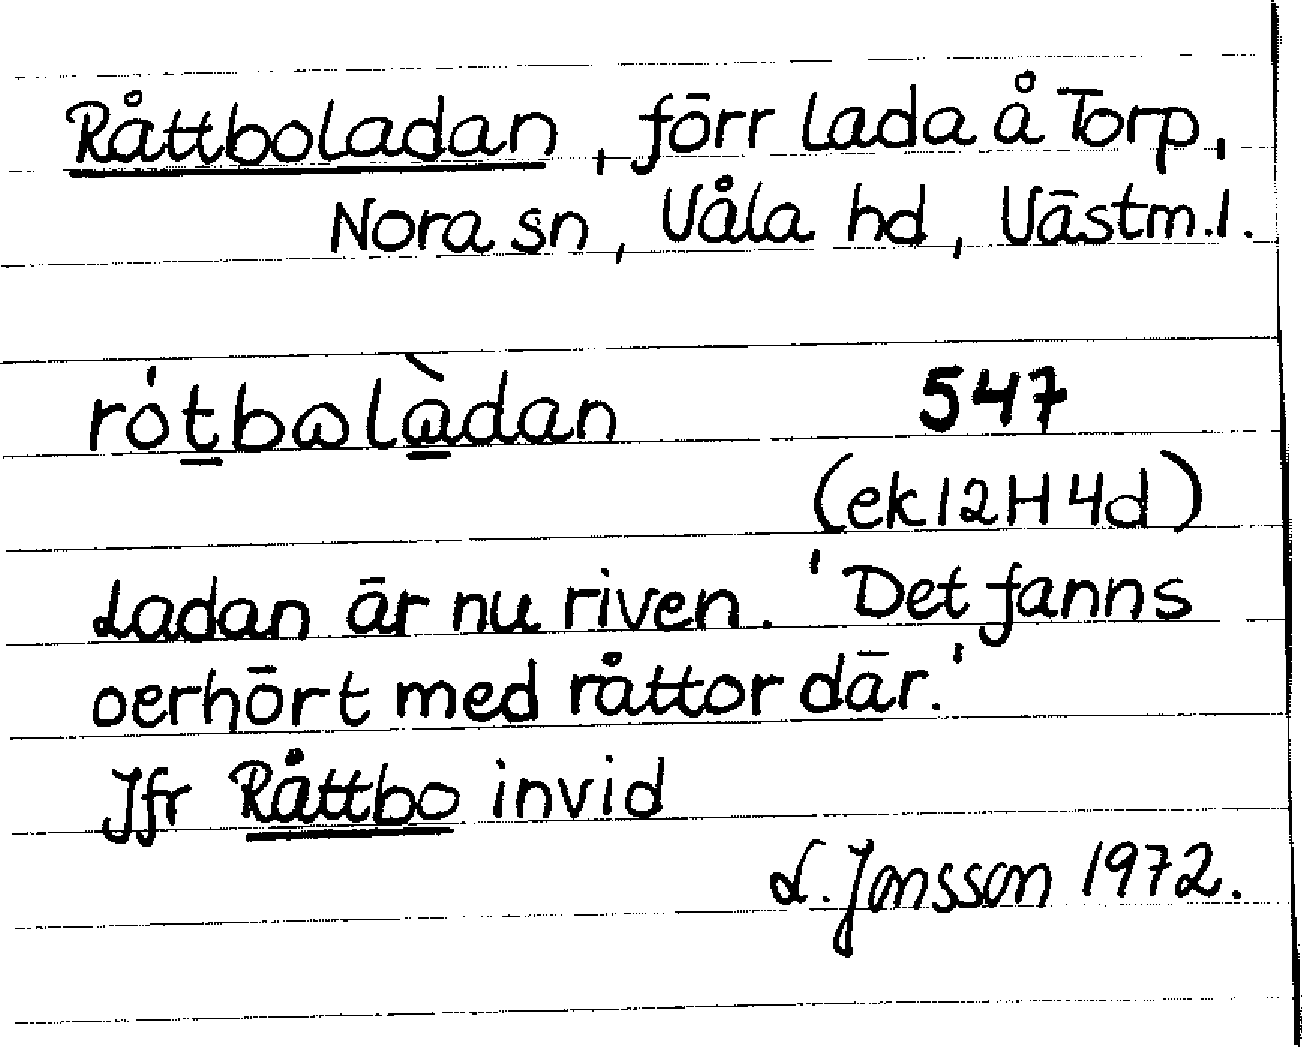 Råttboladan, förr lada å Torp,
Nora sn, Våla hd, Västm.l.
rótbωlàdan 547
(ek 12H4d)
Ladan är nu riven. 'Det fanns
oerhört med råttor där.'
Jfr Råttbo invid
L. Jonsson 1972.